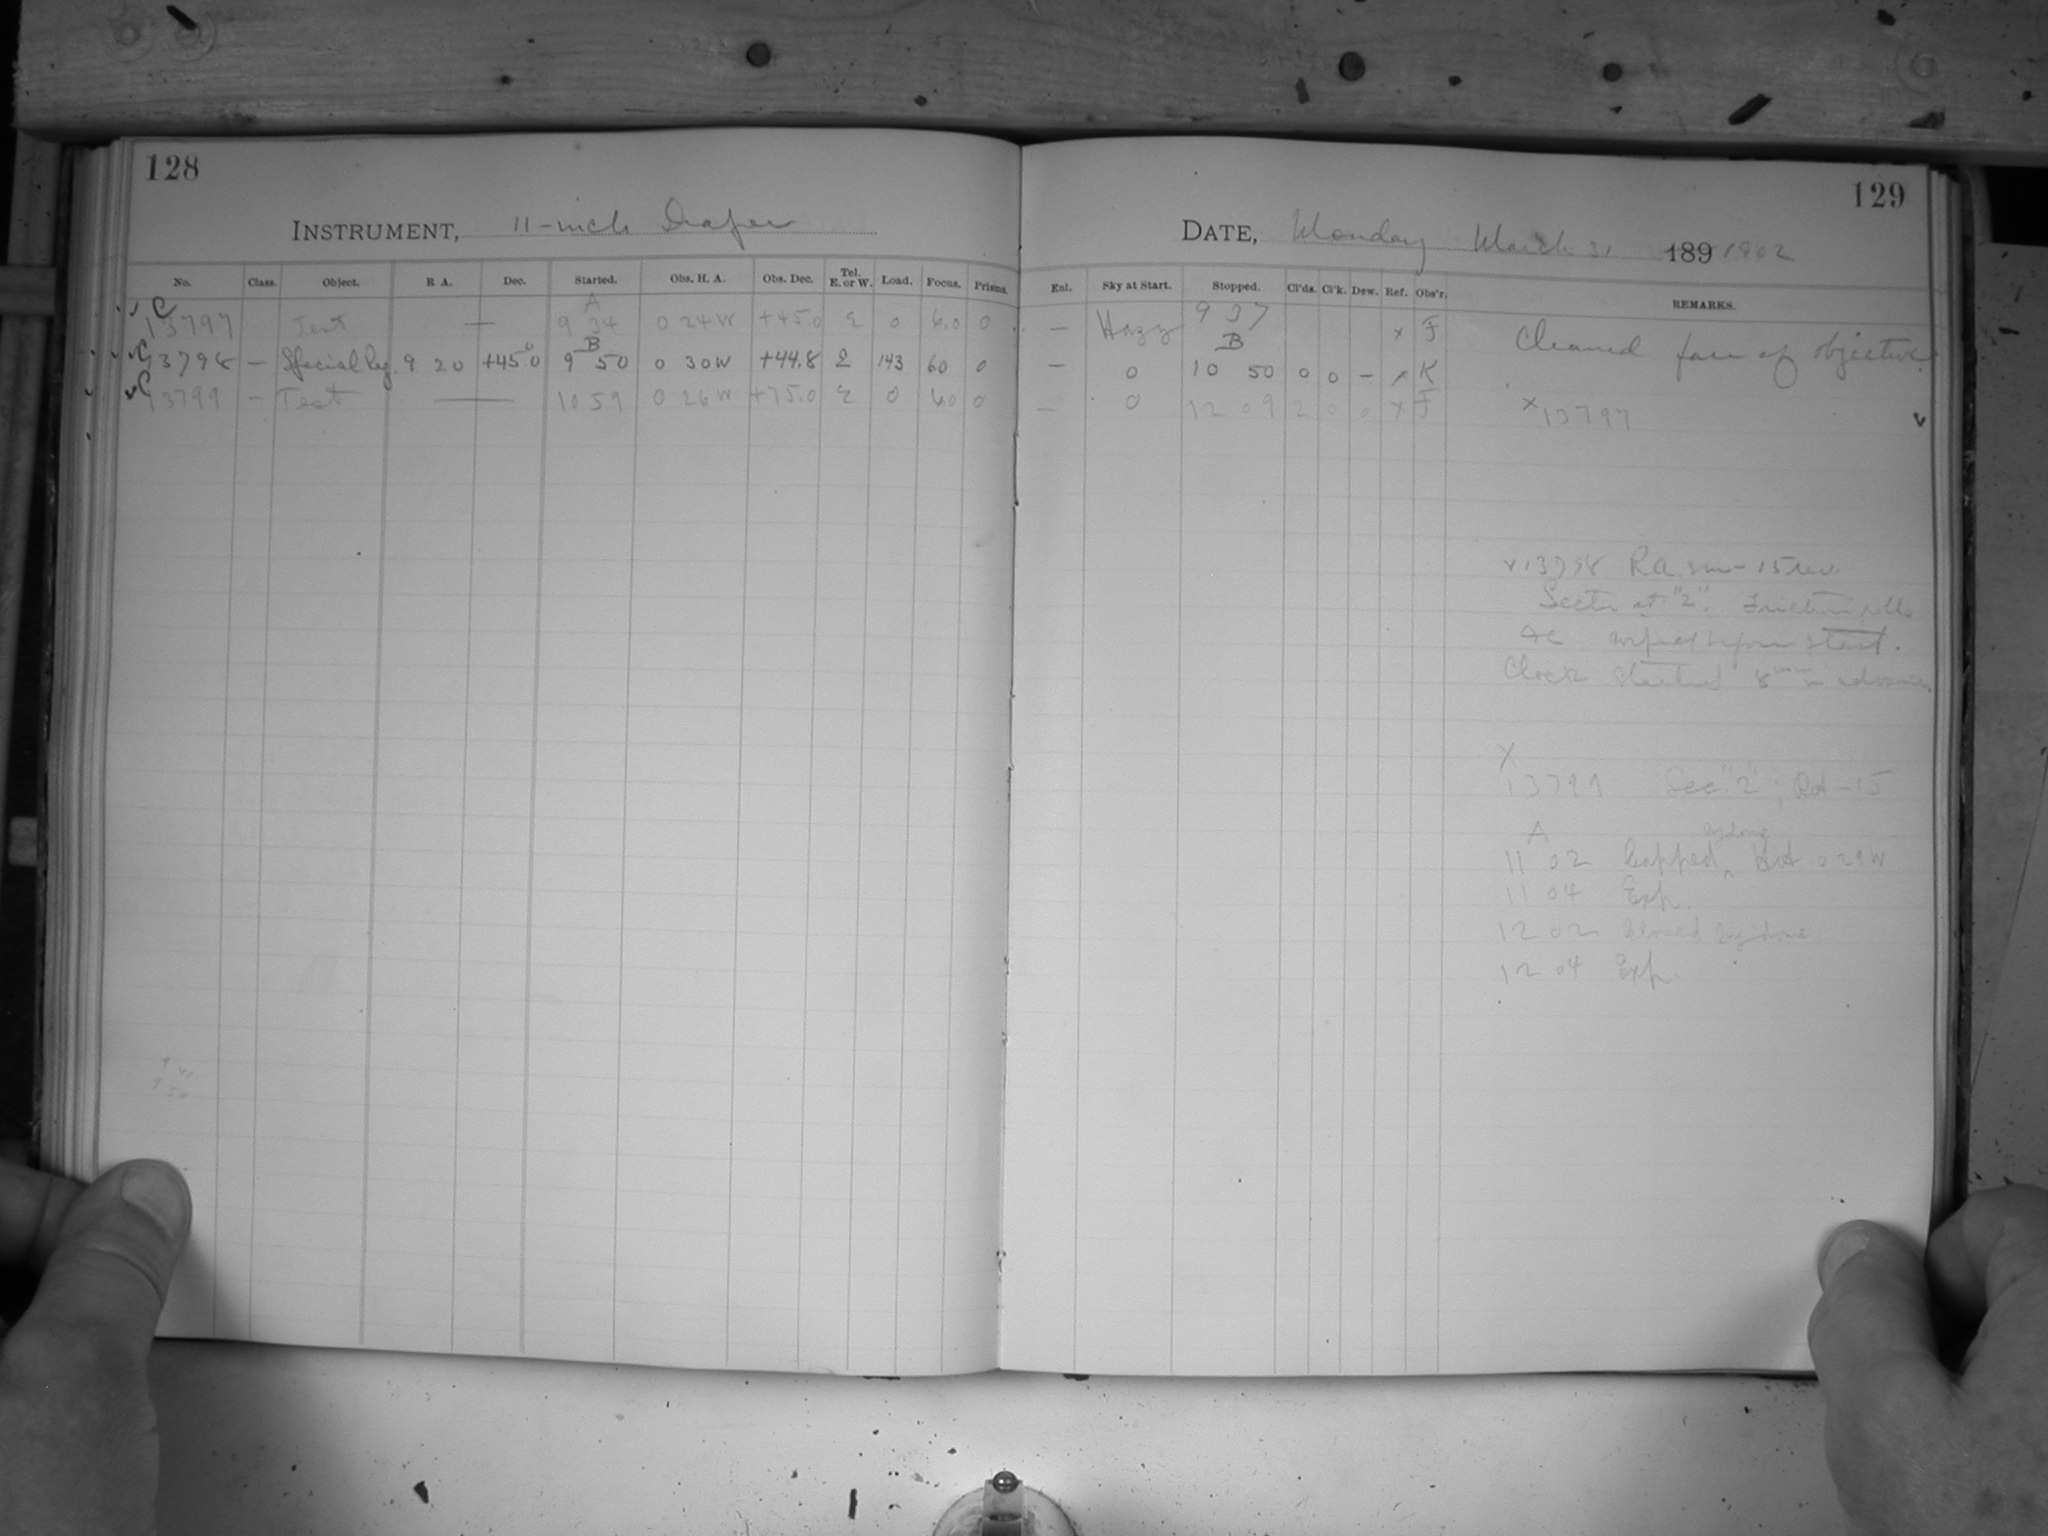 128
129
INSTRUMENT, 11-inch Draper
DATE, Monday March 31 189 1902
No. Class. Object. R A. Dec. Started. Obs. H. A. Obs. Dec. Tel. E. or W. Load. Focus. Prisms. Enl. Sky at Start. Stopped. Cl'ds. Cl'k. Dew. Ref. Obs'r. REMARKS.
C A
13797 Test — 9 34 0 24 W +45.0 E 0 6.0 0 — Hazy 9 37 x F Cleaned face of objective
C B B
13798 — Special Reg. 9 20 +45 0 9 50 0 30W +44.8 E 143 60 0 — 0 10 50 0 0 — x K
C
13799 — Test — 10 59 0 26 W +75.0 E 0 6.0 0 — 0 12 09 2 0 0 x F x 13797
x 13798 R.a. — 15
Sector at "2".
before start.
Clock started 8 min in
X
13799 Sec. "2", Rd -15
A
11 02 Capped, 0 29 W
11 04 Exp.
12 02 Closed
12 04 Exp.
9 41
9 50